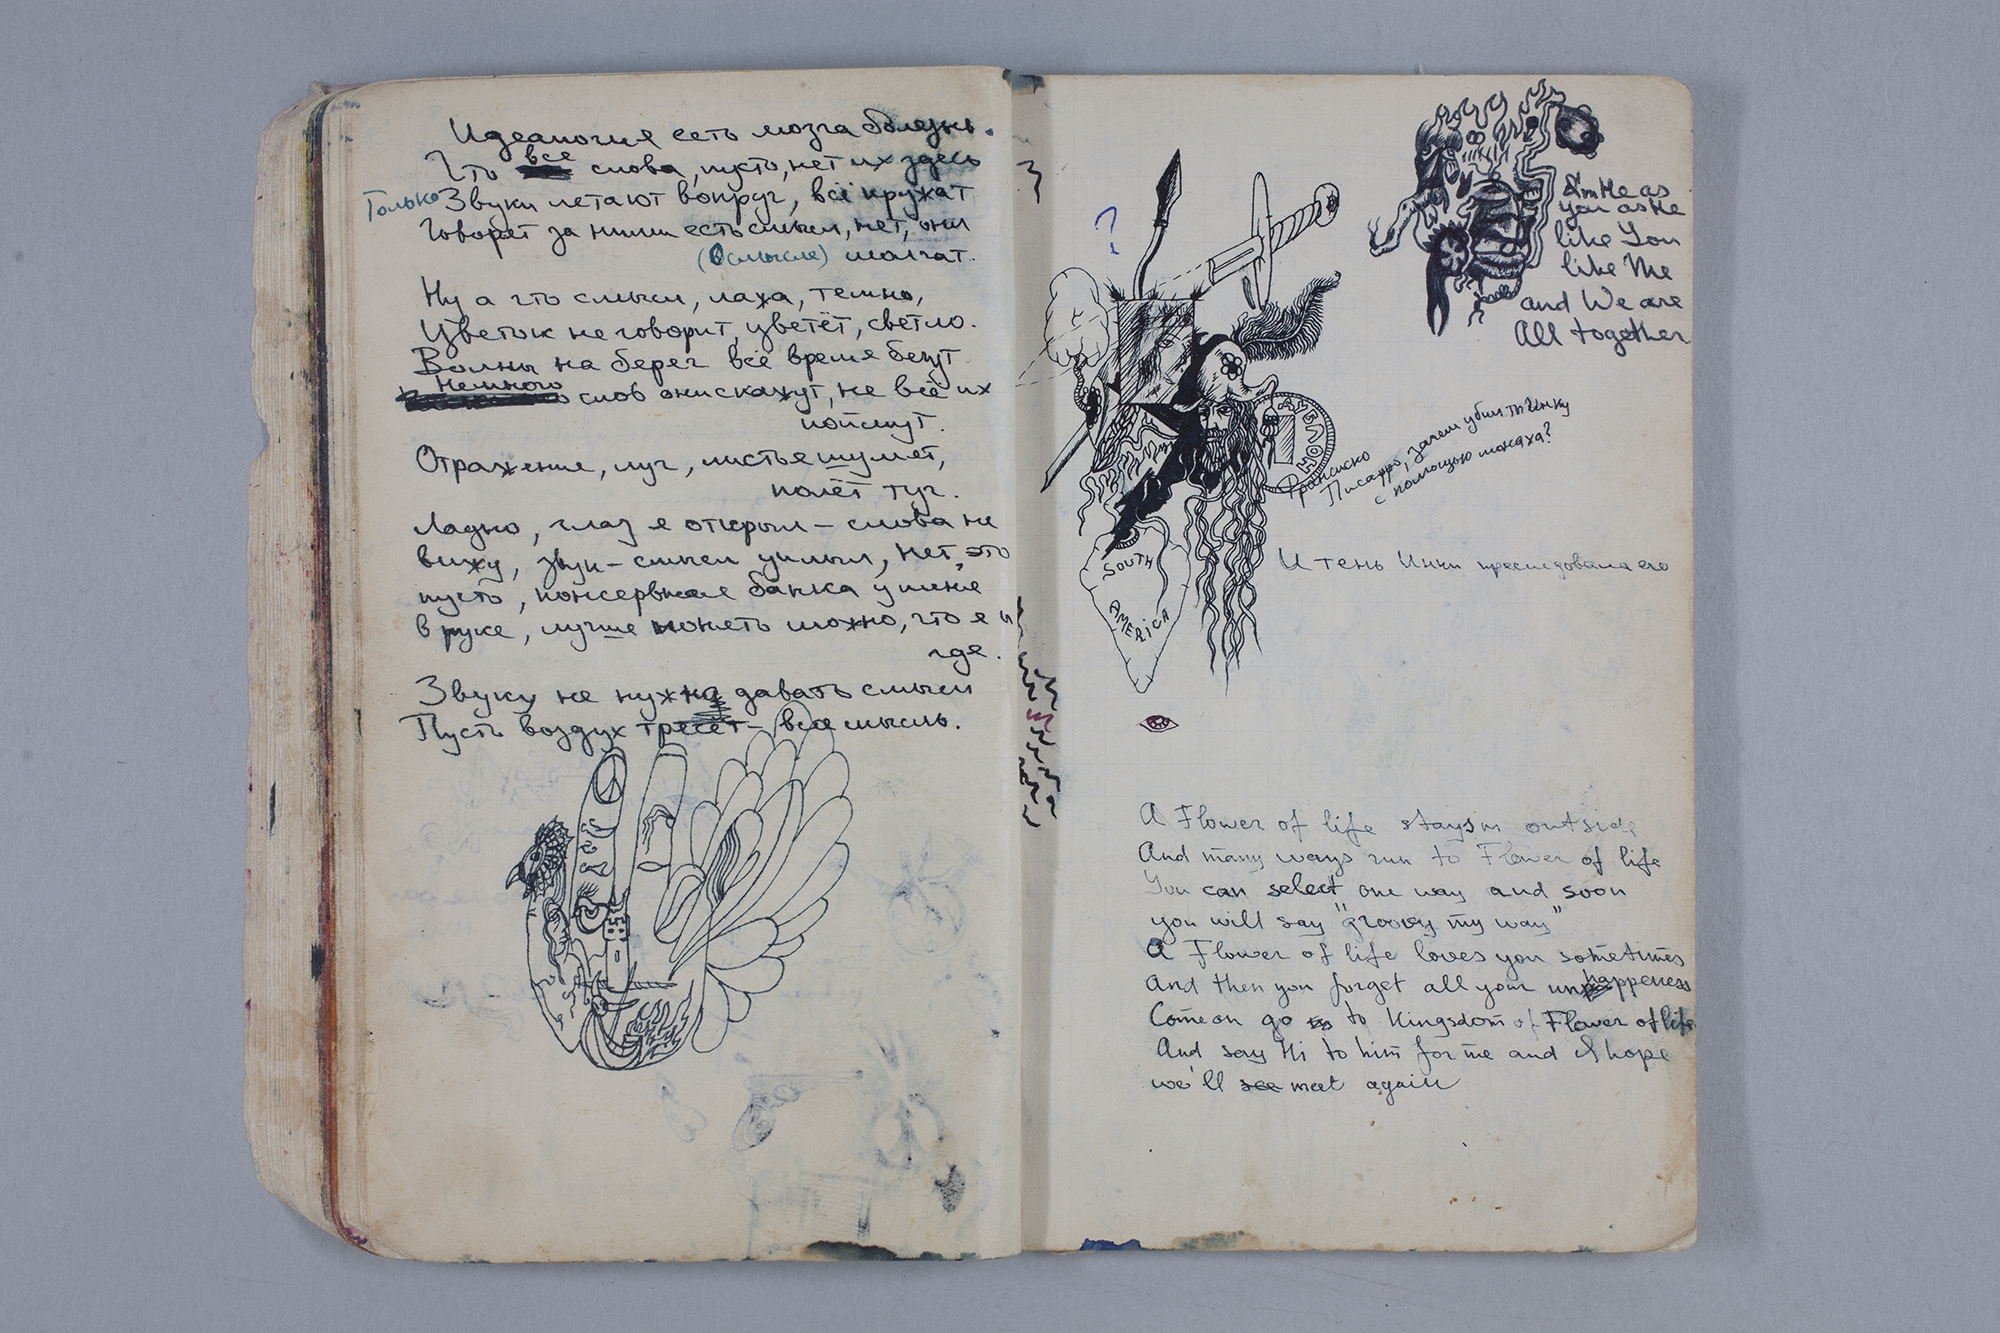 Идеалогия есть мозга болезнь.
Что все слова, пусто, нет их здесь
Только Звуки летают вокруг, всё кружат
Говорят за ними есть смысл, нет, они
(В смысле) молчат.
Ну а что смысл, лажа, темно,
Цветок не говорит, цветёт, светло.
Волны на берег всё время бегут
Немного слов они скажут, не все их
поймут.
Отражение, луч, листья шумят,
полёт туч.
Ладно, глаз я открыл – слова не
вижу, звук – смысл уплыл, нет, это
пусто, консервная банка у меня
в руке, лучше может можно, что я и
где.
Звуку не нужно давать смысл
Пусть воздух тресёт – вся мысль.
I'm He as
you as He
like You
like Me
and We are
All together
?
НОВЕЛЛА
Франсиско
Писарро, зачем убил ты Инку
с помощью монаха?
И тень Инки преследовала его
SOUTH
AMERICA
A Flower of life stays in outside
And many ways run to Flower of life
You can select one way and soon
you will say "groovy my way"
A Flower of life loves you sometimes
And then you forget all your unhappeness
Come on go to Kingsdom of Flower of life
And say Hi to him for me and I hope
we'll see meet again